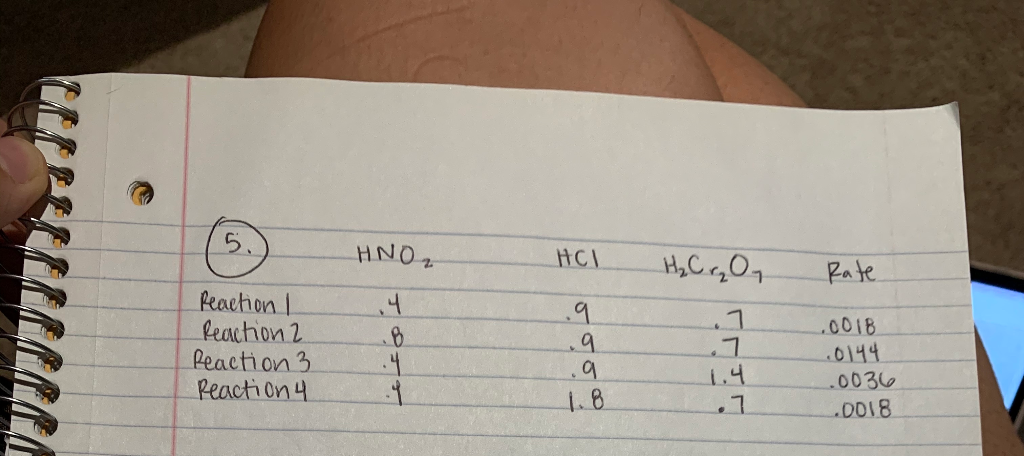 5. HNO₂ HCl H₂Cr₂O₇ Rate
Reaction 1 .4 .9 .7 .0018
Reaction 2 .8 .9 .7 .0144
Reaction 3 .4 .9 1.4 .0036
Reaction 4 .4 1.8 .7 .0018